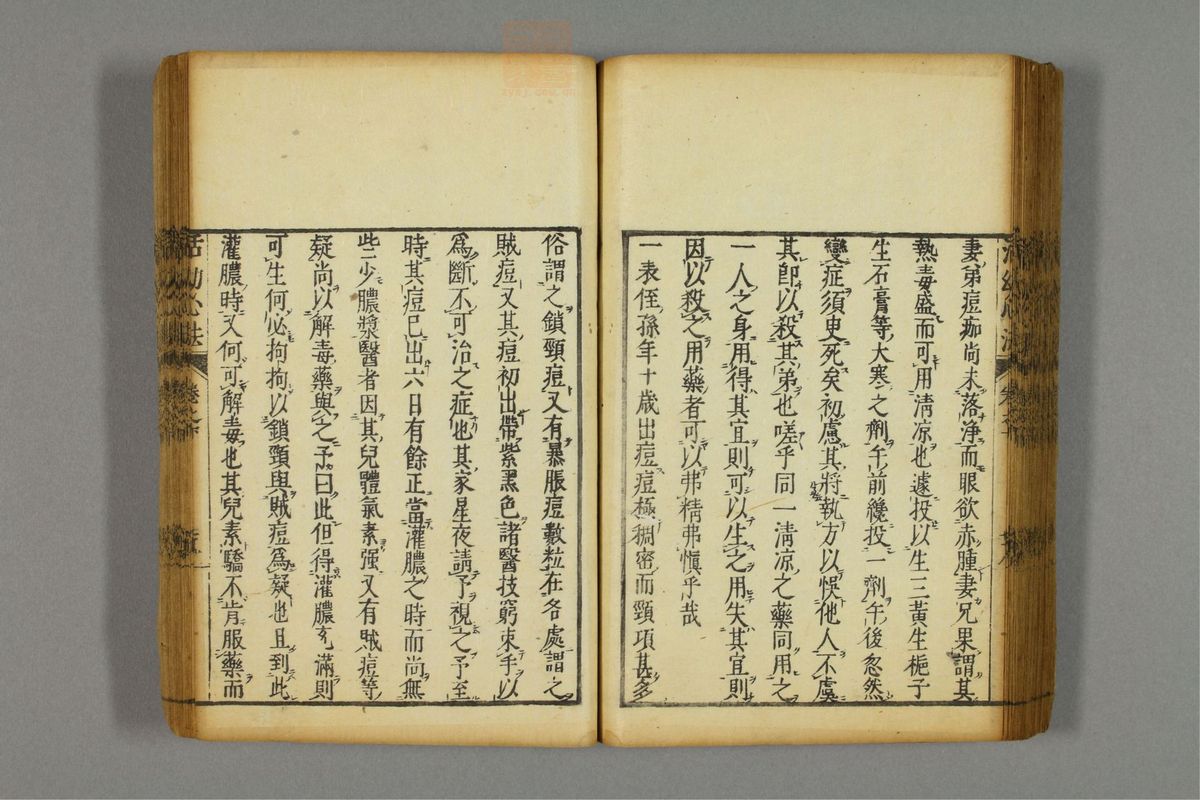 妻弟痘痂尚未落淨而眼欲赤腫妻兄果謂其
熱毒盛而可用清凉也遽投以生三黃生梔子
生石膏等大寒之劑午前纔投一劑午後忽然
變症須臾死矣初慮其將執方以悞他人不虞
其卽以殺其弟也嗟乎同一清凉之藥同用之
一人之身用得其宜則可以生之用失其宜則
因以殺之用藥者可以弗精弗慎乎哉
一表侄孫年十歲出痘痘極稠密而頸項甚多
俗謂之鎖頸痘又有暴脹痘數粒在各處謂之
賊痘又其痘初出帶紫黑色諸醫技窮束手以
爲斷不可治之症也其家星夜請予視之予至
時其痘已出六日有餘正當灌膿之時而尚無
些少膿漿醫者因其兒體氣素强又有賊痘等
疑尚以解毒藥與之予曰此但得灌膿充滿則
可生何必拘拘以鎖頸與賊痘爲疑也且到此
灌膿時又何可解毒也其兒素驕不肯服藥而
活幼心法
卷之